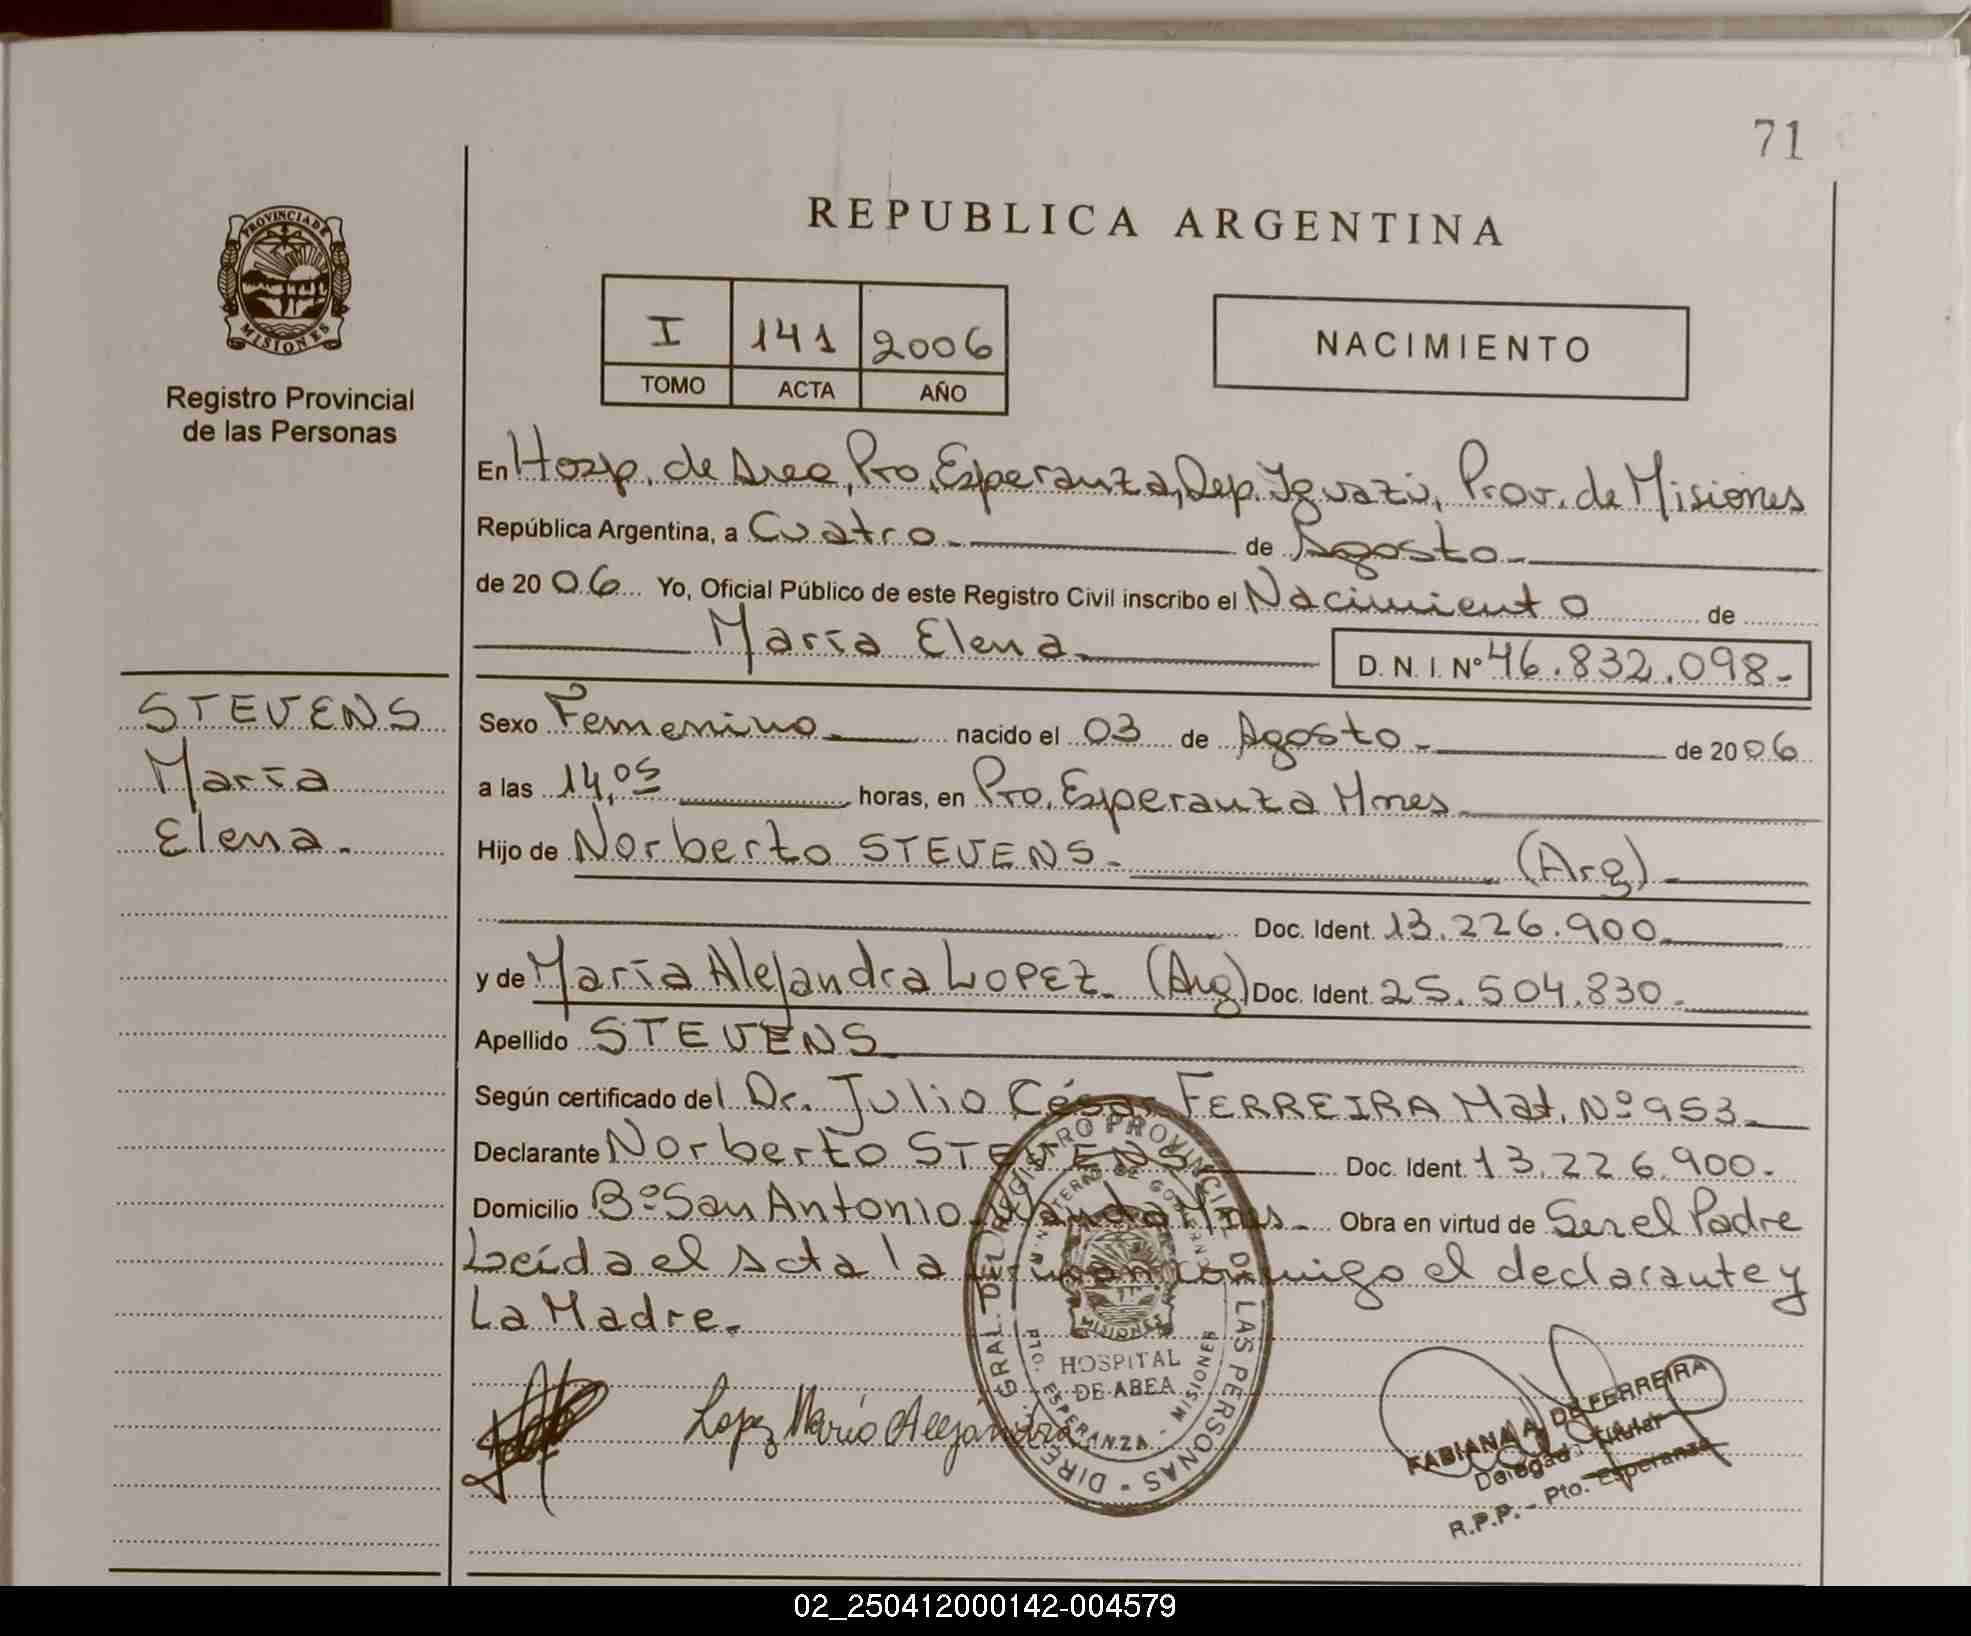 71
PROVINCIA DE
MISIONES
Registro Provincial
de las Personas
REPUBLICA ARGENTINA
I 141 2006
TOMO ACTA AÑO
NACIMIENTO
En Hosp. de Area, Pto. Esperanza, Dep. Iguazú, Prov. de Misiones
República Argentina, a Cuatro.- de Agosto.-
de 20 06 Yo, Oficial Público de este Registro Civil inscribo el Nacimiento de
María Elena.- D. N. I. Nº 46.832.098.-
STEVENS
María
Elena.-
Sexo Femenino.- nacido el 03 de Agosto.- de 20 06
a las 14,05 horas, en Pto. Esperanza Mnes.-
Hijo de Norberto STEVENS.- (Arg).-
Doc. Ident. 13.226.900.-
y de María Alejandra LOPEZ.- (Arg) Doc. Ident. 25.504.830.-
Apellido STEVENS.-
Según certificado del Dr. Julio César FERREIRA Mat. Nº 953.-
Declarante Norberto STEVENS.- Doc. Ident. 13.226.900.-
Domicilio Bº San Antonio Wanda Mnes.- Obra en virtud de Ser el Padre
Leída el acta la firman conmigo el declarante y
La Madre.-
DIREC. GRAL. DEL REGISTRO PROVINCIAL DE LAS PERSONAS
MINISTERIO DE GOBIERNO
MISIONES
HOSPITAL
DE AREA
PTO. ESPERANZA - MISIONES
Lopez María Alejandra
FABIANA A. DE FERREIRA
Delegada Titular
R.P.P. - Pto. Esperanza
02_250412000142-004579